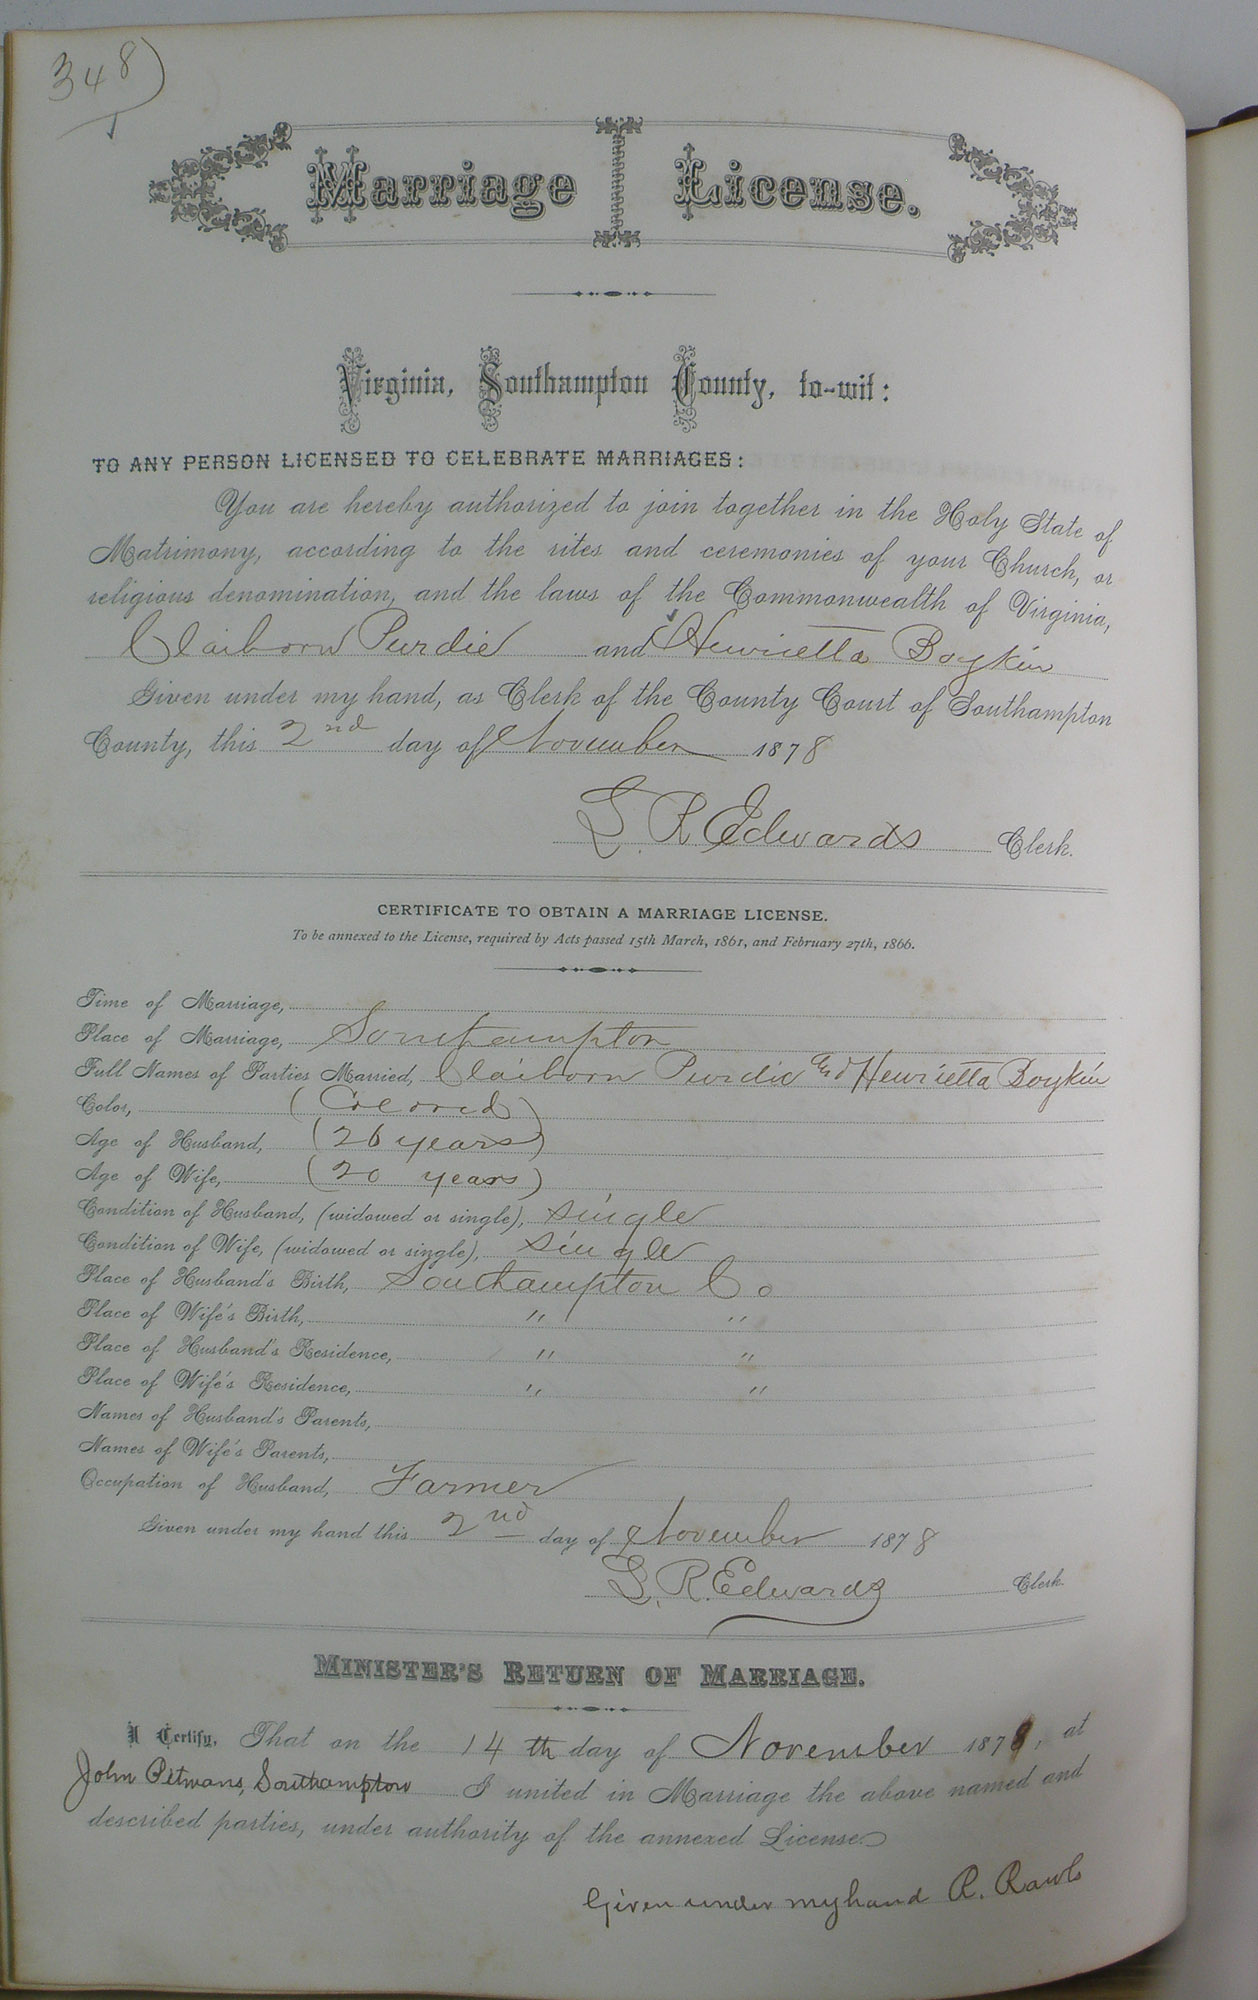 348)
Marriage License.
Virginia, Southampton County, to-wit:
TO ANY PERSON LICENSED TO CELEBRATE MARRIAGES:
You are hereby authorized to join together in the Holy State of
Matrimony, according to the rites and ceremonies of your Church, or
religious denomination, and the laws of the Commonwealth of Virginia,
Claiborn Purdie and Henrietta Boykin
Given under my hand, as Clerk of the County Court of Southampton
County, this 2nd day of November 1878
L. R. Edwards Clerk.
CERTIFICATE TO OBTAIN A MARRIAGE LICENSE.
To be annexed to the License, required by Acts passed 15th March, 1861, and February 27th, 1866.
Time of Marriage,
Place of Marriage, Southampton
Full Names of Parties Married, Claiborn Purdie and Henrietta Boykin
Color, (Colored)
Age of Husband, (26 years)
Age of Wife, (20 years)
Condition of Husband, (widowed or single), single
Condition of Wife, (widowed or single), single
Place of Husband's Birth, Southampton Co
Place of Wife's Birth, " "
Place of Husband's Residence, " "
Place of Wife's Residence, " "
Names of Husband's Parents,
Names of Wife's Parents,
Occupation of Husband, Farmer
Given under my hand this 2nd day of November 1878
L. R. Edwards Clerk.
MINISTER'S RETURN OF MARRIAGE.
I Certify, That on the 14th day of November 1878, at
John Pitmans, Southampton I united in Marriage the above named and
described parties, under authority of the annexed License.
Given under my hand R. Rawls